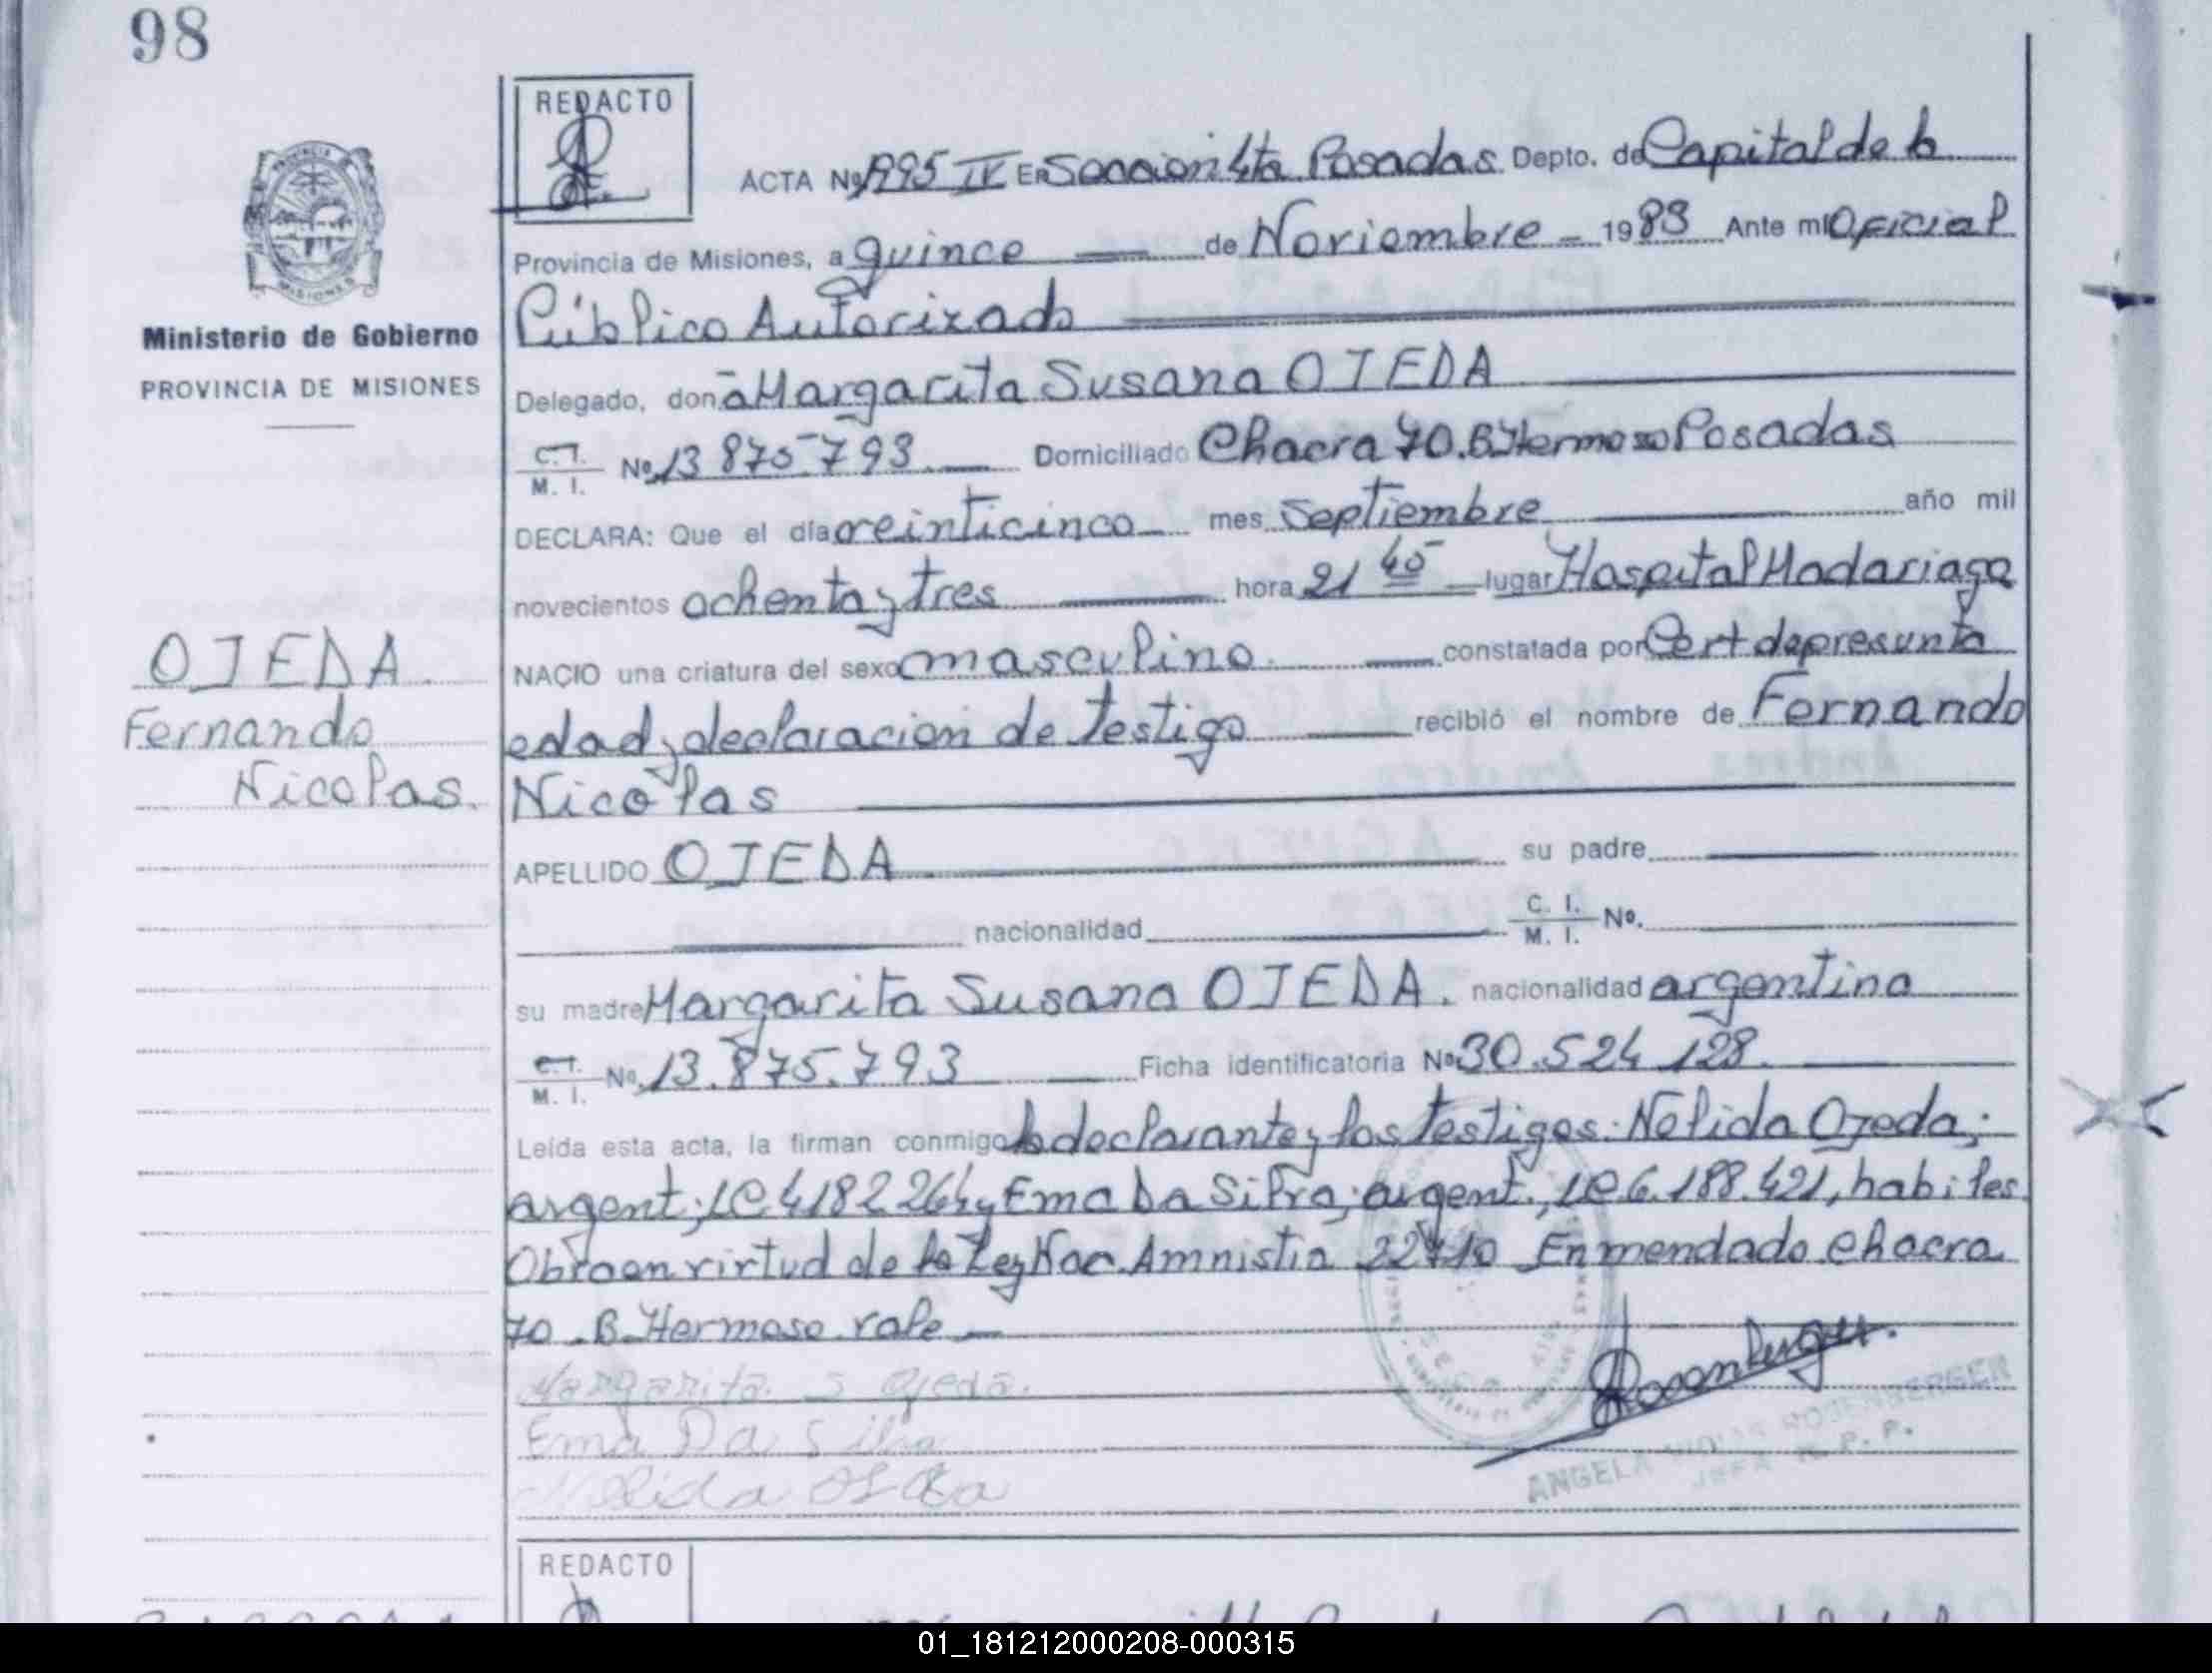 98
REDACTO
ACTA Nº 1995 IV En Seccion 4ta Posadas Depto. de Capital de la
Provincia de Misiones, a quince de Noviembre 1983 Ante mi Oficial
Público Autorizado
Ministerio de Gobierno
PROVINCIA DE MISIONES
Delegado, don a Margarita Susana OJEDA
C.I.
M. I. Nº 13 875 793 Domiciliado Chacra 70. B. Hermoso Posadas
DECLARA: Que el día veinticinco mes septiembre año mil
novecientos ochenta y tres hora 21 45 lugar Hospital Madariaga
NACIO una criatura del sexo masculino constatada por Cert de presunta
edad y declaracion de testigo recibió el nombre de Fernando
Nicolas
OJEDA
Fernando
Nicolas.
APELLIDO OJEDA su padre
nacionalidad C. I. M. I. Nº.
su madre Margarita Susana OJEDA. nacionalidad argentina
C.I.
M. I. Nº 13.875.793 Ficha identificatoria Nº 30.524 128.
Leída esta acta, la firman conmigo la declarante y los testigos: Nelida Ojeda;
argent; LC 4182264 y Ema Da Silva, argent., LC 6.188.421, habiles
Obra en virtud de la Ley Nac. Amnistia 22410 Enmendado Chacra
70 - B. Hermoso vale
Margarita S Ojeda.
Ema Da Silva
Nelida Ojeda
Rosenberger.
ANGELA ROSENBERGER
JEFA R. P. P.
REDACTO
01_181212000208-000315